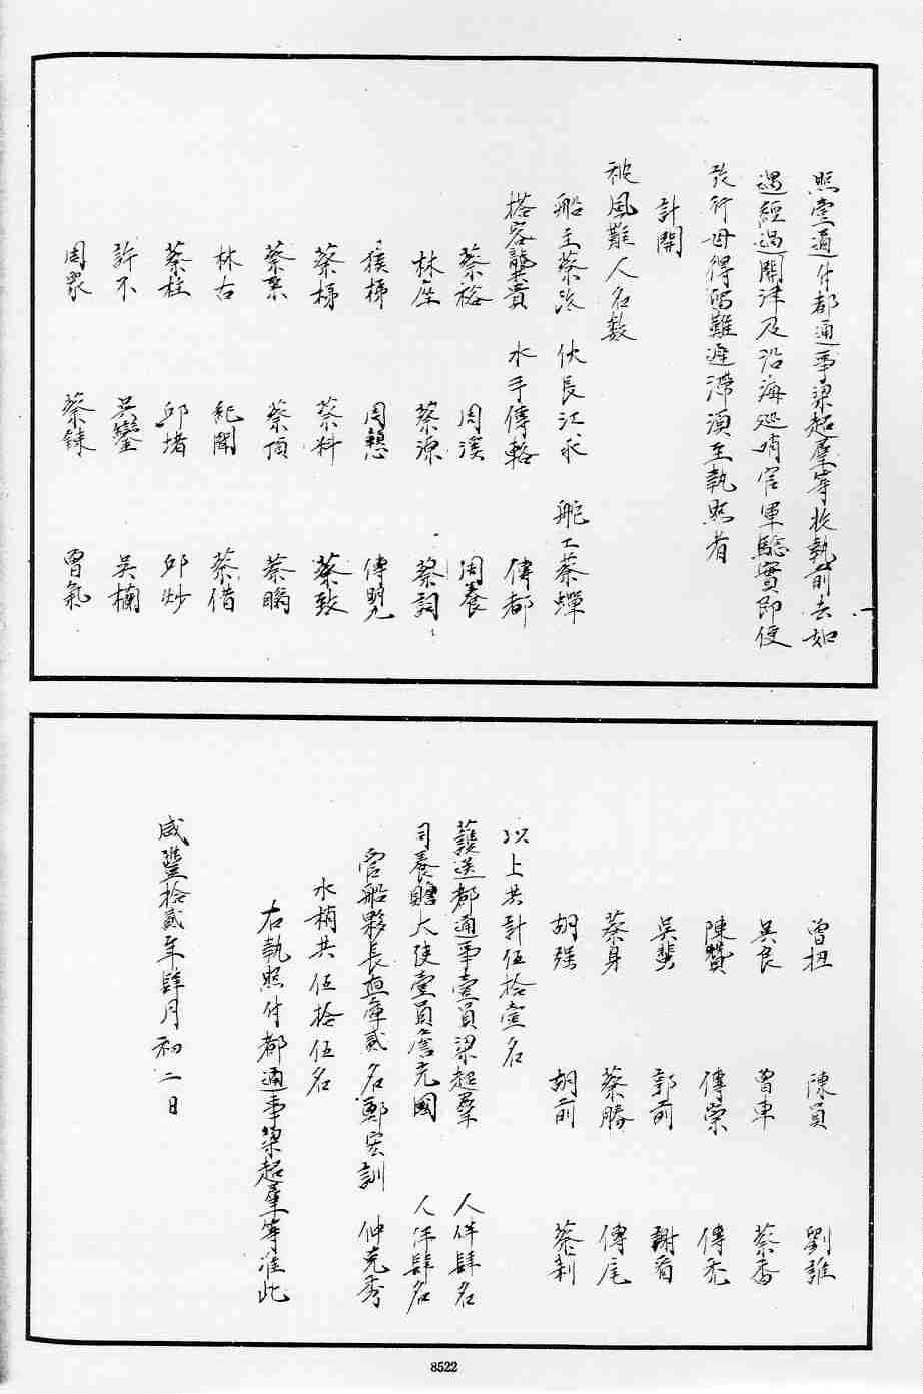 照壹道付都通事梁起羣等收執前去如
遇經過關津及沿海巡哨官軍驗實即便
放行毋得留難遲滯須至執照者
計開
被風難人名數
船主蔡 伙長江永 舵工蔡蟬
搭客龔貴 水手傅輅 傅都
蔡裕 周溪 周養
林座 蔡源 蔡詞
侯梯 周憩 傅明九
蔡梯 蔡料 蔡致
蔡景 蔡頂 蔡
林古 紀閙 蔡借
蔡柱 邱堵 邱炒
許不 吳鑾 吳楠
周眾 蔡銇 曾氣
曾扭 陳員 劉誰
吳良 曾車 蔡香
陳贊 傅崇 傅禿
吳 郭前 謝看
蔡身 蔡勝 傅尾
胡強 胡前 蔡莿
以上共計伍拾壹名
護送都通事壹員梁起羣 人伴肆名
司養贍大使壹員詹充國 人伴肆名
官船夥長直庫貳名鄭宏訓 仲克秀
水梢共伍拾伍名
右執照付都通事梁起羣等准此
咸豐拾貳年肆月初二日
8522